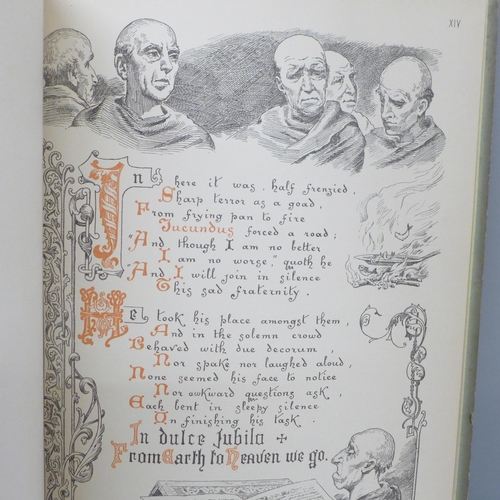 XIV
In here it was, half frenzied,
Sharp terror as a goad,
From frying pan to fire
Jucundus forced a road;
"And, though I am no better
I am no worse," quoth he
And I will join in silence
This sad fraternity.
He took his place amongst them,
And in the solemn crowd
Behaved with due decorum,
Nor spake nor laughed aloud,
None seemed his face to notice
Nor awkward questions ask,
Each bent in sleepy silence
On finishing his task.
In dulce Jubilo
From Earth to Heaven we go.